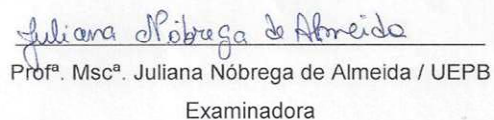 Juliana Nóbrega de Almeida
Profª. Mscª. Juliana Nóbrega de Almeida / UEPB
Examinadora